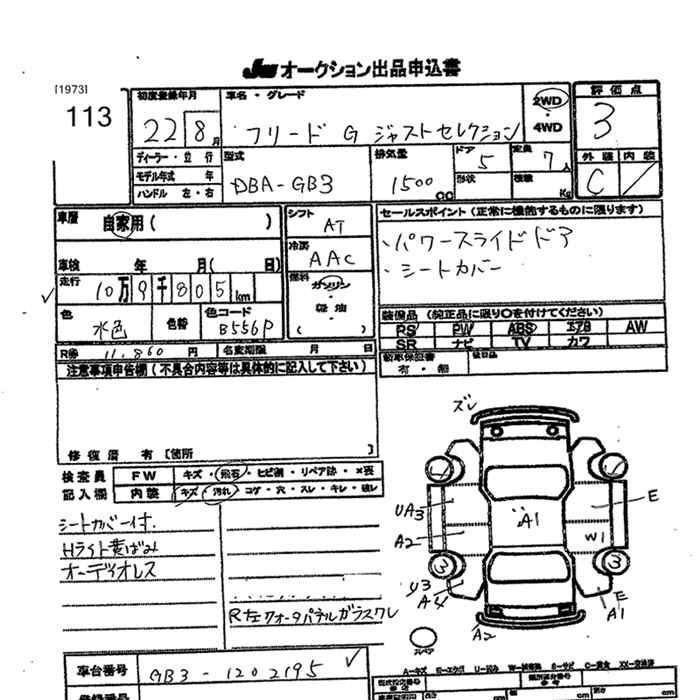 JU オークション出品申込書
[1973]
113
初度登録年月
22 8月
車名・グレード
フリード G ジャストセレクション
2WD
・
4WD
評価点
3
ディーラー・並行
モデル年式 年
ハンドル 左・右
型式
DBA-GB3
排気量
1500 CC
ドア
5
形状
定員
7人
積載
Kg
外装 内装
C /
車歴
自家用( )
車検 年 月( 日)
シフト
AT
冷房
AAC
セールスポイント(正常に機能するものに限ります)
・パワースライドドア
・シートカバー
走行
10万9千805km
燃料
ガソリン
・
軽油
・
( )
色
水色
色替
色コード
B556P
装備品(純正品に限り○を付けてください)
PS PW ABS エアB AW
SR ナビ TV カワ
R券 11,860円
名変期限 月 日
新車保証書
有・無
後日品
注意事項申告欄(不具合内容等は具体的に記入して下さい)
修復歴 有〔箇所 〕
検査員
記入欄
FW キズ・飛石・ヒビ割・リペア跡・×要
内装 キズ・汚れ・コゲ・穴・スレ・キレ・破レ
シートカバー付.
Hライト黄ばみ
オーディオレス
R左クォータパネルガラスズレ
ズレ
UA3
A2
A1
E
W1
3
3
U3
A4
E
A1
A2
スペア
A-キズ E-エクボ U-凹み W-補修跡 S-サビ C-腐食 XX-交換済
車台番号
GB3-1202195
登録番号
型式指定番号
類別区分番号
長さ cm
cm